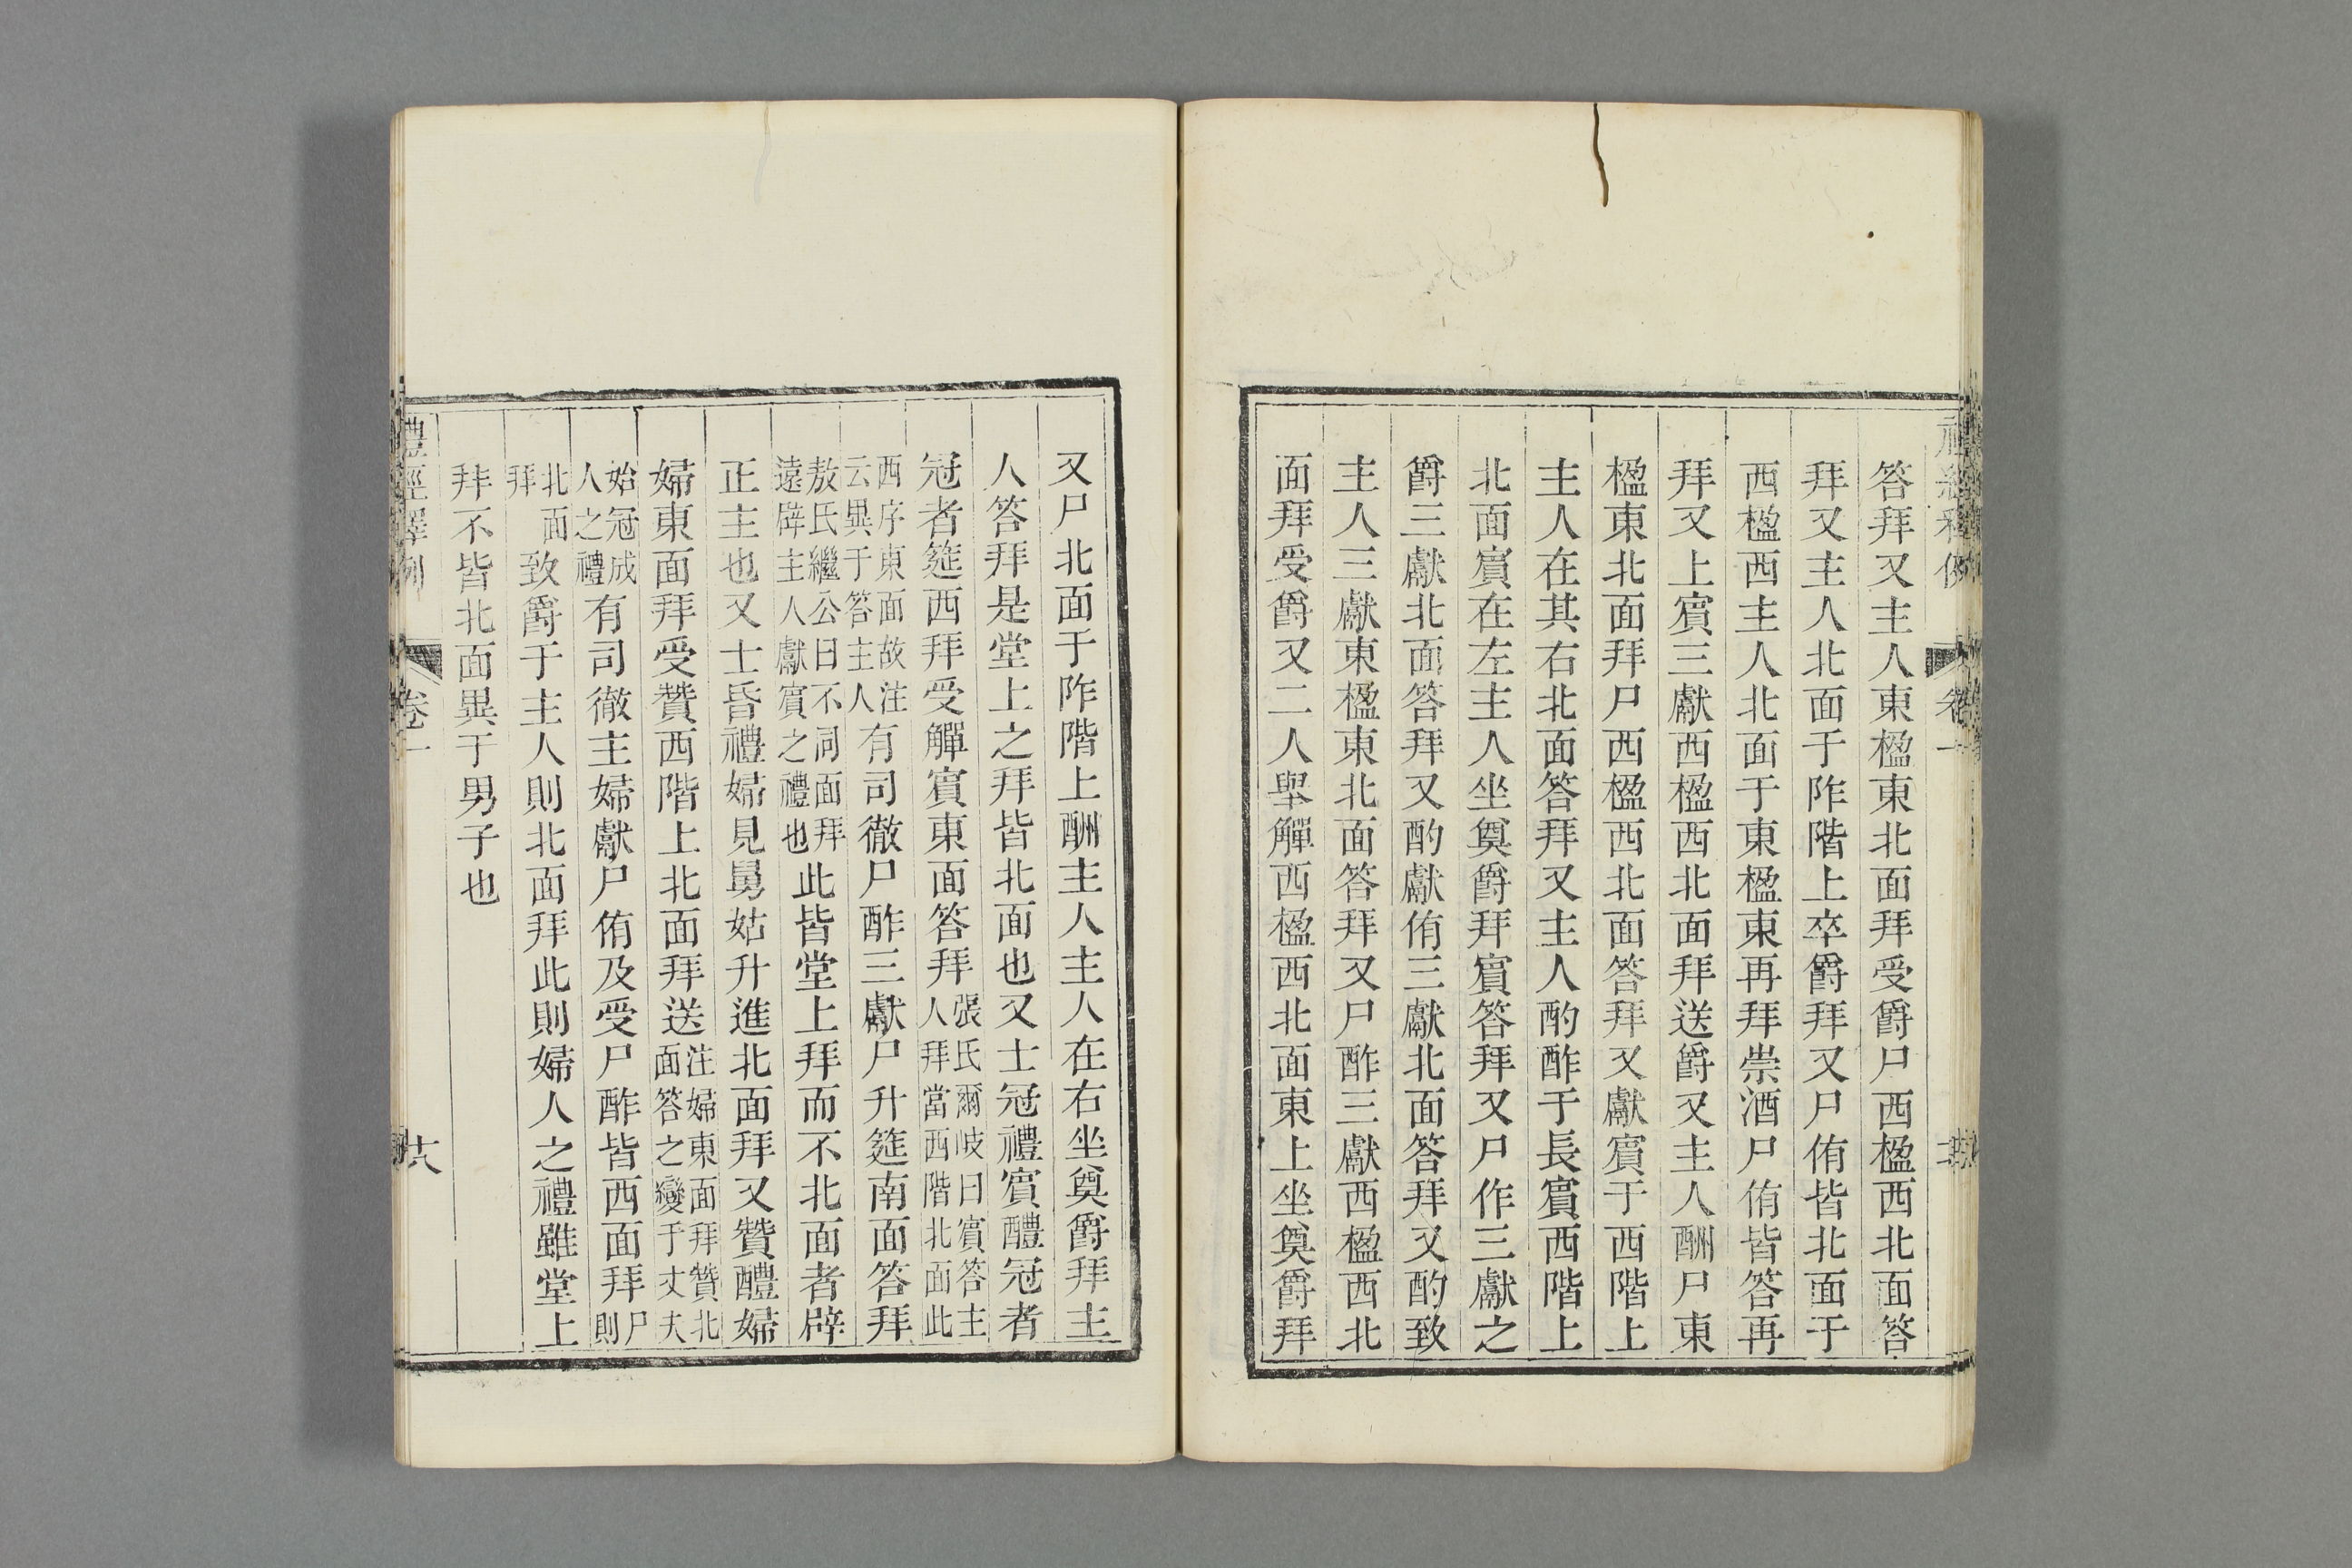 答拜又主人東楹東北面拜受爵尸西楹西北面答
拜又主人北面于阼階上卒爵拜又尸侑皆北面于
西楹西主人北面于東楹東再拜崇酒尸侑皆答再
拜又上賓三獻西楹西北面拜送爵又主人酬尸東
楹東北面拜尸西楹西北面答拜又獻賓于西階上
主人在其右北面答拜又主人酌酢于長賓西階上
北面賓在左主人坐奠爵拜賓答拜又尸作三獻之
爵三獻北面答拜又酌獻侑三獻北面答拜又酌致
主人三獻東楹東北面答拜又尸酢三獻西楹西北
面拜受爵又二人舉觶西楹西北面東上坐奠爵拜
又尸北面于阼階上酬主人主人在右坐奠爵拜主
人答拜是堂上之拜皆北面也又士冠禮賓醴冠者
冠者筵西拜受觶賓東面答拜張氏爾岐曰賓答主人拜當西階北面此
西序東面故注云異于答主人有司徹尸酢三獻尸升筵南面答拜
敖氏繼公曰不同面拜遠辟主人獻賓之禮也此皆堂上拜而不北面者辟
正主也又士昏禮婦見舅姑升進北面拜又贊醴婦
婦東面拜受贊西階上北面拜送注婦東面拜贊北面答之變于丈夫
始冠成人之禮有司徹主婦獻尸侑及受尸酢皆西面拜尸則
北面拜致爵于主人則北面拜此則婦人之禮雖堂上
拜不皆北面異于男子也
禮經釋例
卷一
十八